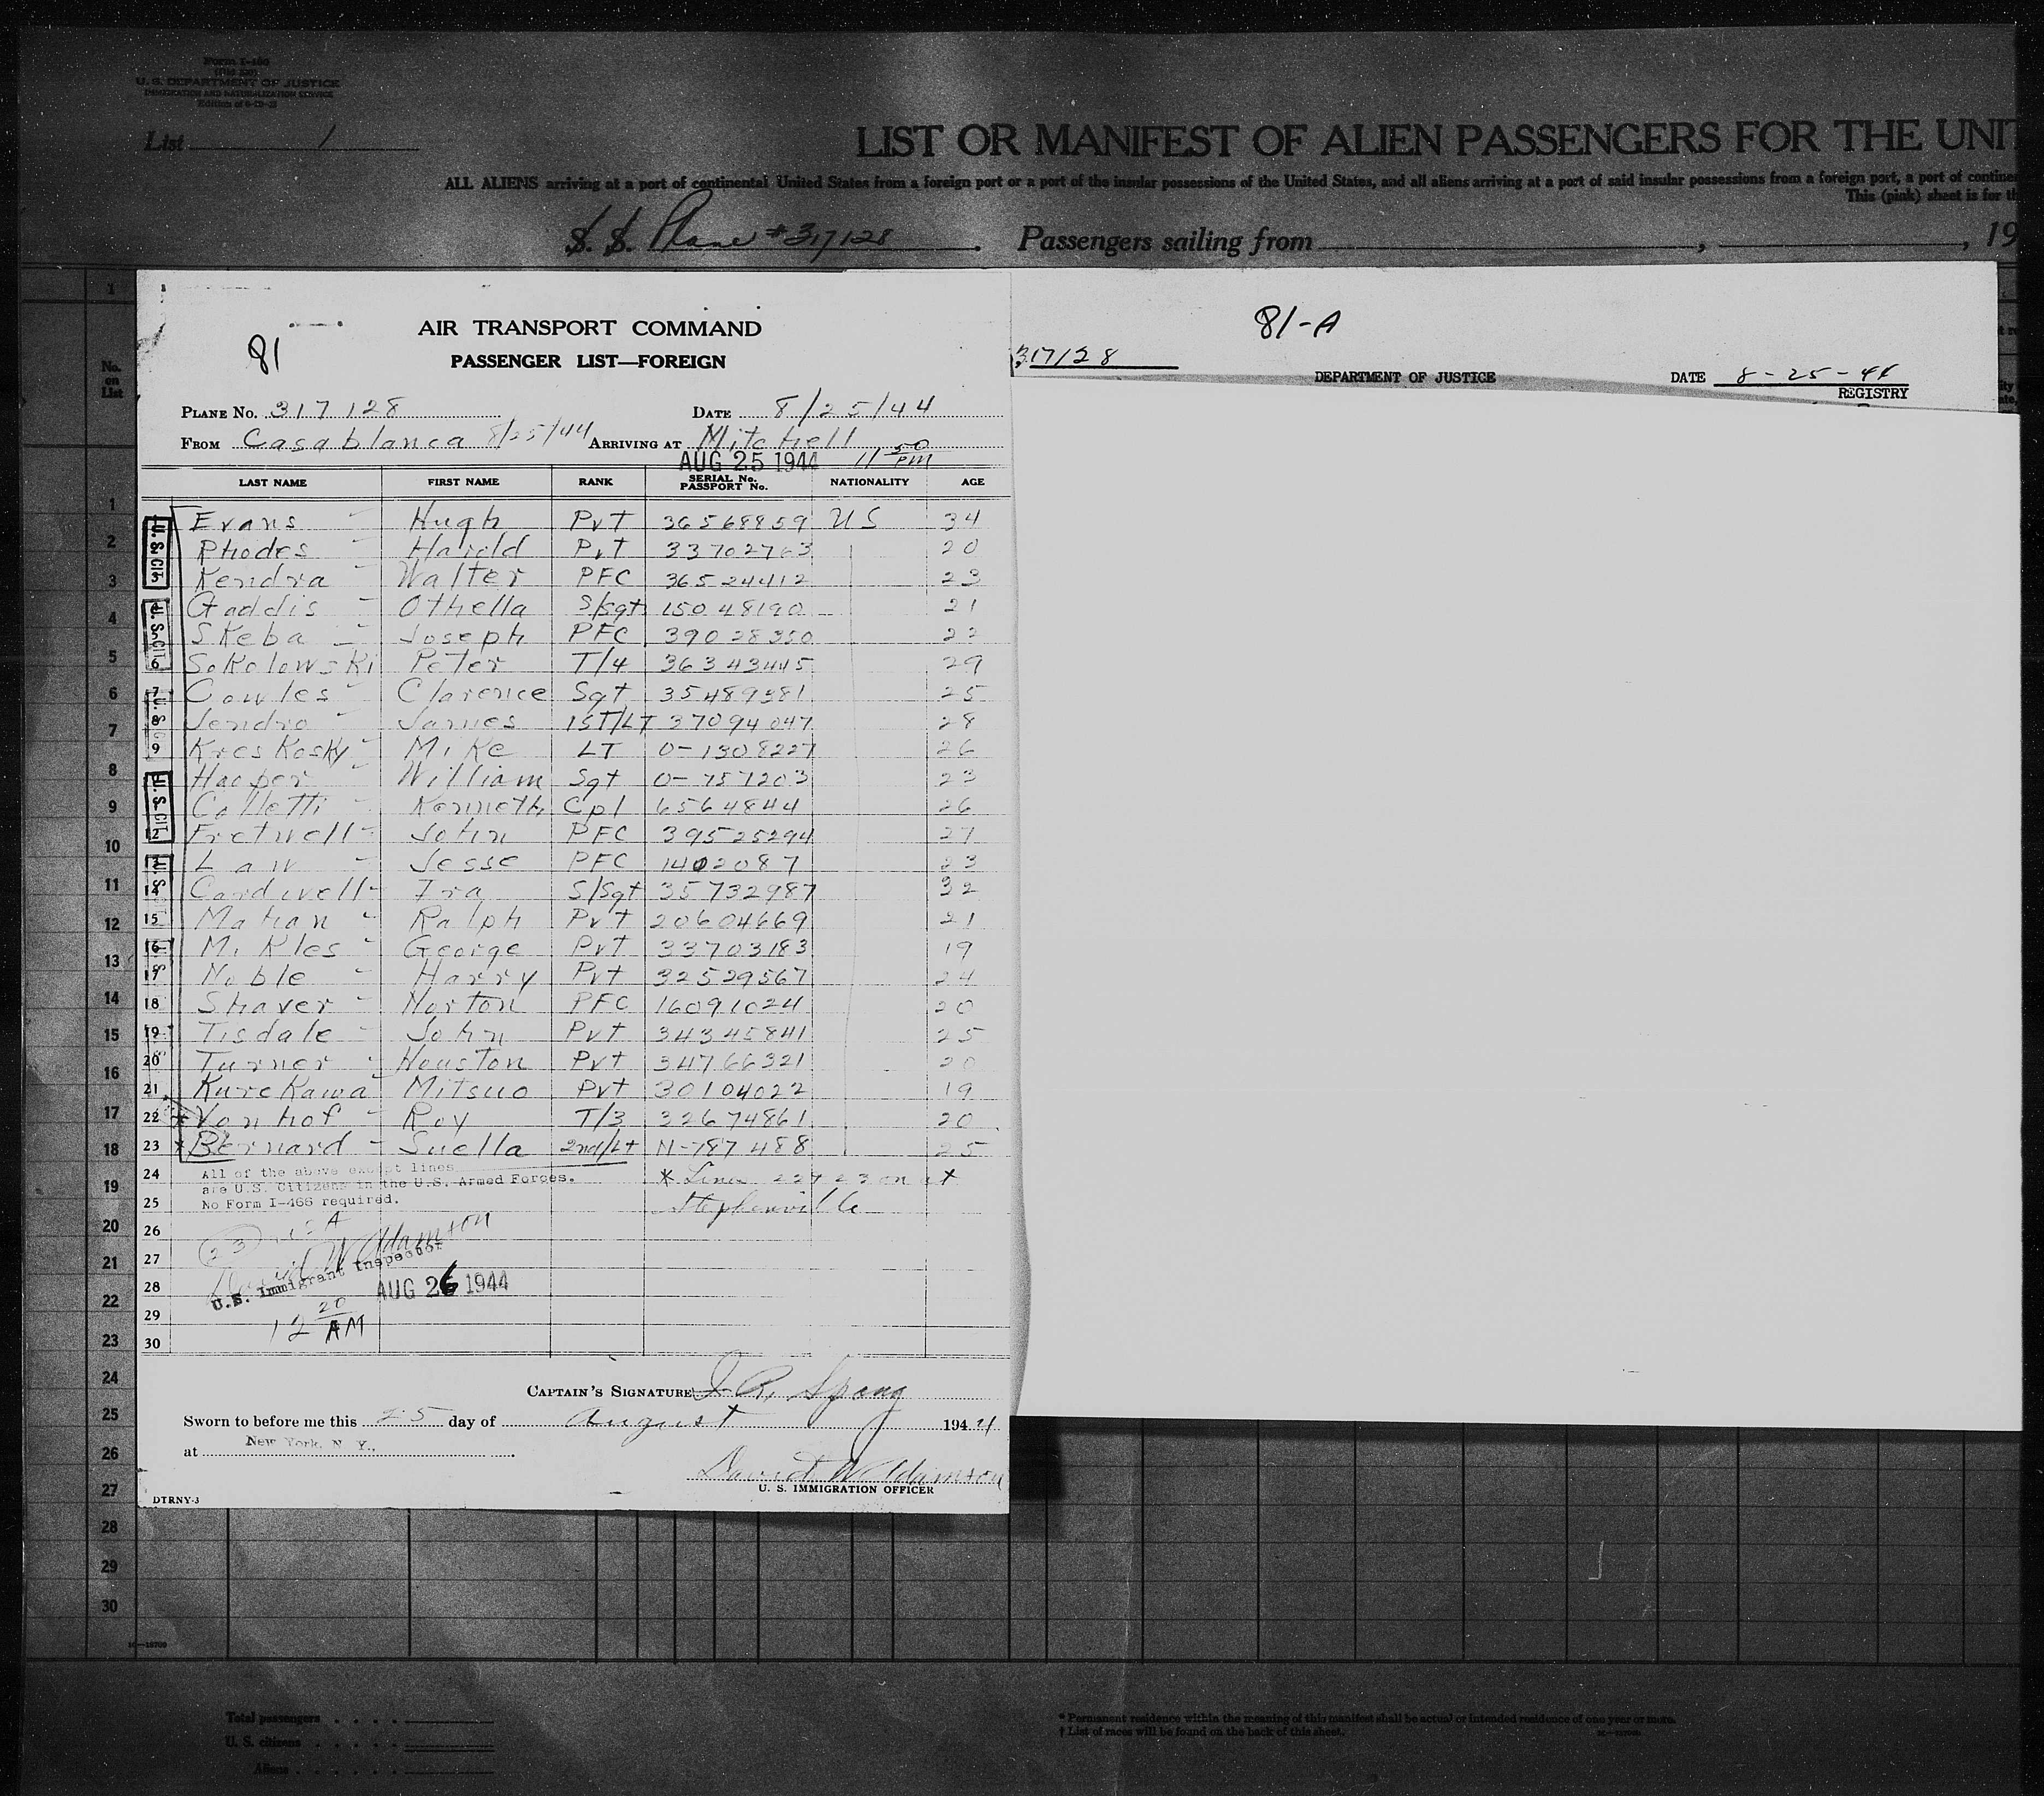 Form I-466
U. S. DEPARTMENT OF JUSTICE
IMMIGRATION AND NATURALIZATION SERVICE
List 1
LIST OR MANIFEST OF ALIEN PASSENGERS FOR THE UNIT
ALL ALIENS arriving at a port of continental United States from a foreign port or a port of the insular possessions of the United States, and all aliens arriving at a port of said insular possessions from a foreign port, a port of contine
This (pink) sheet is for th
S. S. Plane #317128 . Passengers sailing from , , 19
81
AIR TRANSPORT COMMAND
PASSENGER LIST—FOREIGN
PLANE NO. 317128 DATE 8/25/44
FROM Casablanca 8/25/44 ARRIVING AT Mitchell
AUG 25 1944 11 50 PM
LAST NAME FIRST NAME RANK SERIAL No. PASSPORT No. NATIONALITY AGE
Evans Hugh Pvt 36568859 US 34
Rhodes Harold Pvt 33702763 20
Kendra Walter PFC 36524412 23
Gaddis Othella S/Sgt 15048190 21
Skeba Joseph PFC 39028350 23
6 Sokolowski Peter T/4 36343445 29
7 Cowles Clarence Sgt 35489381 25
8 Jendro James 1ST/LT 37094047 28
9 Kreskosky Mike LT O-1308227 26
Hooper William Sgt O-757203 23
Colletti Kenneth Cpl 6564844 26
12 Fretwell John PFC 39525294 27
Law Jesse PFC 1402087 23
14 Cardwell Ira S/Sgt 35732987 32
15 Mahan Ralph Pvt 20604669 21
16 Mikles George Pvt 33703183 19
17 Noble Harry Pvt 32529567 24
18 Shaver Norton PFC 16091024 20
19 Tisdale John Pvt 34345841 25
20 Turner Houston Pvt 34766321 20
21 Kurekawa Mitsuo Pvt 30104022 19
22 * Vonhof Roy T/3 32674861 20
23 * Bernard Suella 2nd/Lt N-787488 25
24 All of the above except lines
are U.S. Citizens in the U.S. Armed Forces.
25 No Form I-466 required.
* Lines 22 + 23 on at
Stephenville
26
27 David W Adamson
U.S. Immigrant Inspector
28 AUG 26 1944
29 12 20 AM
30
CAPTAIN'S SIGNATURE J. R. Spang
Sworn to before me this 25 day of August 1944
at New York, N. Y.,
David W Adamson
U. S. IMMIGRATION OFFICER
DTRNY-3
81-A
317128
DEPARTMENT OF JUSTICE DATE 8-25-44
REGISTRY
No. on List
1
2
3
4
5
6
7
8
9
10
11
12
13
14
15
16
17
18
19
20
21
22
23
24
25
26
27
28
29
30
Total passengers
U. S. citizens
Aliens
* Permanent residence within the meaning of this manifest shall be actual or intended residence of one year or more.
† List of races will be found on the back of this sheet.